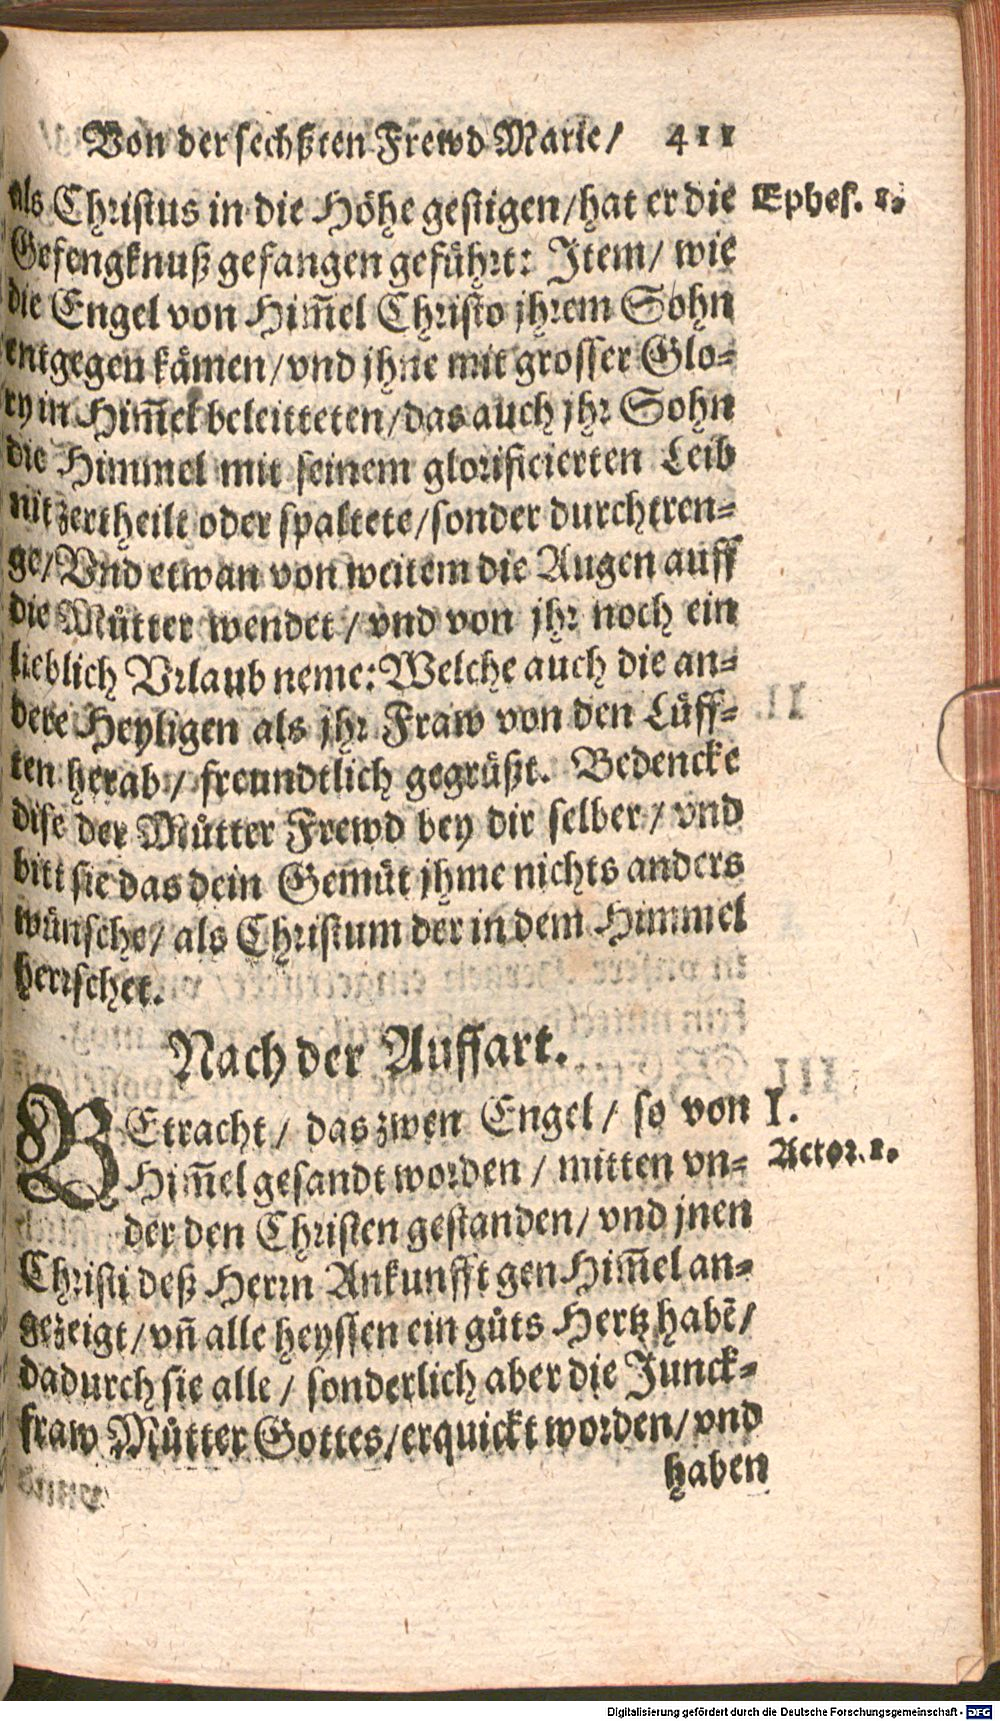 Von der sechßten Frewd Marie/ 411
als Christus in die Höhe gestigen/hat er die Ephes. 1.
Gefengknuß gefangen geführt: Item/ wie
die Engel von Him̃el Christo jhrem Sohn
entgegen kämen/vnd jhne mit grosser Glo-
ry in Him̃el beleitteten/das auch jhr Sohn
die Himmel mit seinem glorificierten Leib
nit zertheilt oder spaltete/sonder durchtren-
ge/Vnd etwan von weitem die Augen auff
die Můtter wendet/ vnd von jhr noch ein
lieblich Vrlaub neme: Welche auch die an-
dere Heyligen als jhr Fraw von den Lüff-
ten herab/ freundtlich gegrüßt. Bedencke
dise der Můtter Frewd bey dir selber/ vnd
bitt sie das dein Gemůt jhme nichts anders
wünsche/ als Christum der in dem Himmel
herrschet.
Nach der Auffart.
BEtracht/ das zwen Engel/ so von I.
Him̃el gesandt worden/ mitten vn- Actor. 1.
der den Christen gestanden/ vnd jnen
Christi deß Herrn Ankunfft gen Him̃el an-
gezeigt/ vñ alle heyssen ein gůts Hertz habẽ/
dadurch sie alle/ sonderlich aber die Junck-
fraw Můtter Gottes/erquickt worden/ vnd
haben
Digitalisierung gefördert durch die Deutsche Forschungsgemeinschaft - DFG